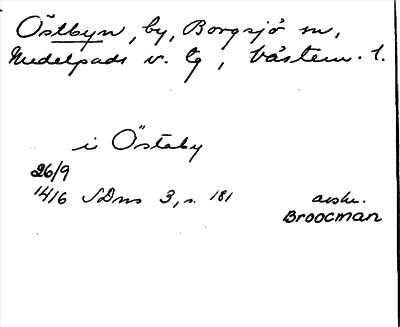 Östbyn, by, Borgsjö sn,
Medelpads v. tg, Västern. l.
i Östaby
26/9
1416 SDns 3, s. 181
avskr.
Broocman